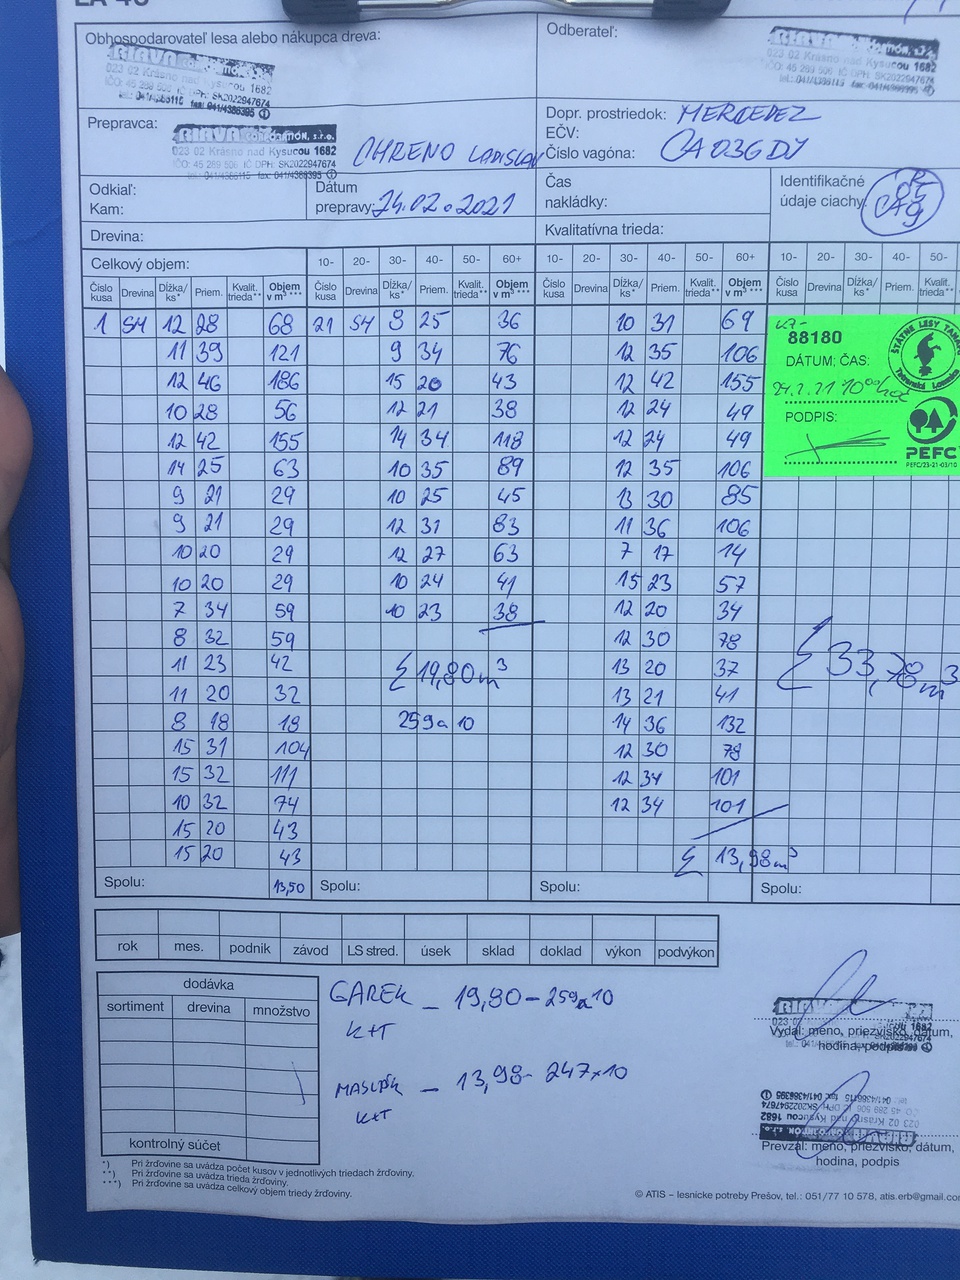 Obhospodarovateľ lesa alebo nákupca dreva:
Odberateľ:
023 02 Krásno nad Kysucou 1682
Prepravca:
023 02 Krásno nad Kysucou 1682
IČO: 45 289 506 IČ DPH: SK2022947674
CHRENO LADISLAV
Dopr. prostriedok: MERCEDEZ
EČV:
Číslo vagóna: CA036DJ
Odkiaľ:
Kam:
Dátum
prepravy: 24.02.2021
Čas
nakládky:
Identifikačné
údaje ciachy:
Drevina:
Kvalitatívna trieda:
Celkový objem:
10- 20- 30- 40- 50- 60+ 10- 20- 30- 40- 50- 60+ 10- 20- 30- 40- 50-
Číslo kusa Drevina Dĺžka/ks* Priem. Kvalit. trieda** Objem v m³ *** Číslo kusa Drevina Dĺžka/ks* Priem. Kvalit. trieda** Objem v m³ *** Číslo kusa Drevina Dĺžka/ks* Priem. Kvalit. trieda** Objem v m³ *** Číslo kusa Drevina Dĺžka/ks* Priem. Kvalit. trieda
1 SM 12 28 68 21 SM 9 25 36 10 31 69
11 39 121 9 34 76 12 35 106
12 46 186 15 20 43 12 42 155
10 28 56 12 21 38 12 24 49
12 42 155 14 34 118 12 24 49
14 25 63 10 35 89 12 35 106
9 21 29 10 25 45 13 30 85
9 21 29 12 31 83 11 36 106
10 20 29 12 27 63 7 17 14
10 20 29 10 24 41 15 23 57
7 34 59 10 23 38 12 20 34
8 32 59 12 30 78
11 23 42 Σ 19,80m³ 13 20 37
11 20 32 13 21 41
8 18 18 259a 10 14 36 132
15 31 104 12 30 78
15 32 111 12 34 101
10 32 74 12 34 101
15 20 43
15 20 43 Σ 13,98m³
Σ 33,78m³
88180
ŠTÁTNE LESY
DÁTUM; ČAS:
PODPIS:
PEFC
PEFC/23-21-03/10
Spolu: 13,50 Spolu: Spolu: Spolu:
rok mes. podnik závod LS stred. úsek sklad doklad výkon podvýkon
dodávka
sortiment drevina množstvo
kontrolný súčet
GAREK – 19,80 – 259a10
K+T
– 13,98 – 247x10
K+T
Vydal: meno, priezvisko, dátum,
hodina, podpis
Prevzal: meno, priezvisko, dátum,
hodina, podpis
*) Pri žrďovine sa uvádza počet kusov v jednotlivých triedach žrďoviny.
**) Pri žrďovine sa uvádza trieda žrďoviny.
***) Pri žrďovine sa uvádza celkový objem triedy žrďoviny.
© ATIS – lesnícke potreby Prešov, tel.: 051/77 10 578, atis.erb@gmail.co